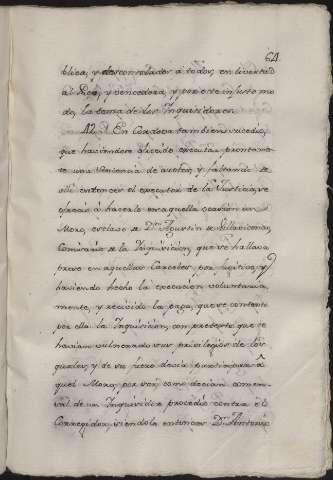 64
blica, y desconsolados á todos, en livertad
al Reo, y vencedora, y por este injusto mo
do, la tema de los Inquisidores.
En Cordova tambien sucedio,
que haviendose ofrecido executar prontamen
te una sentencia de azotes, y faltando
alli entonces el executor de la Justicia, se
ofreció á hacerlo en aquella ocasion un
Moro, esclavo de Dn Agustin de Villavicencio,
Comisario de la Inquisicion, que se hallava
preso en aquellas Carceles, por fugitivo, y
haviendo hecho la execucion voluntaria
mente, y recivido la paga, que se contento
por ella la Inquisicion, con pretexto que se
havian vulnerado sus privilegios de los
quales, y de su fuero devia participar a
quel Moro, por ser, como decian, comen
sal de un Inquisidor procedió contra el
Corregidor, siendolo entonces Dn Antonio